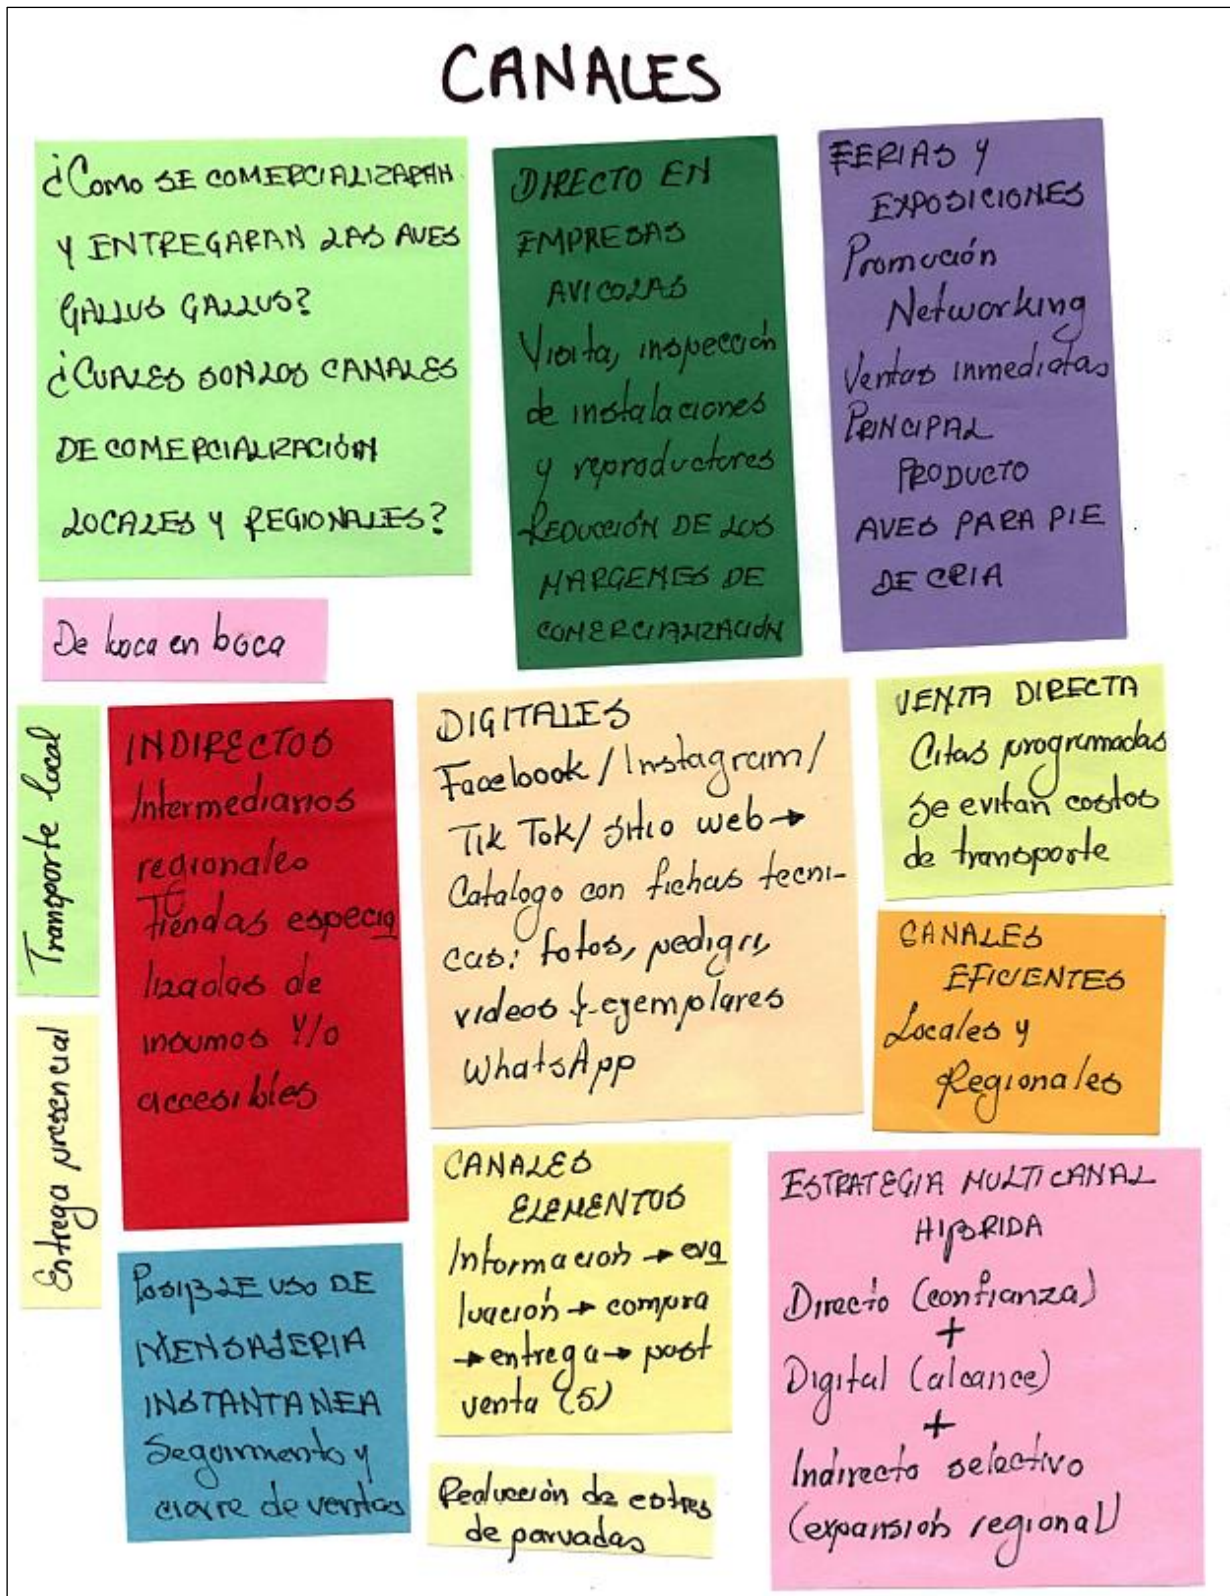 CANALES
¿COMO SE COMERCIALIZARAN
Y ENTREGARAN LAS AVES
GALLUS GALLUS?
¿CUALES SON LOS CANALES
DE COMERCIALIZACIÓN
LOCALES Y REGIONALES?
DIRECTO EN
EMPRESAS
AVICOLAS
Visita, inspección
de instalaciones
y reproductores
REDUCCIÓN DE LOS
MARGENES DE
COMERCIALIZACIÓN
FERIAS Y
EXPOSICIONES
Promoción
Networking
Ventas inmediatas
PRINCIPAL
PRODUCTO
AVES PARA PIE
DE CRIA
De boca en boca
Transporte local
Entrega presencial
INDIRECTOS
Intermediarios
regionales
Tiendas especia
lizadas de
insumos Y/o
accesibles
DIGITALES
Facebook / Instagram /
Tik Tok / sitio web →
Catalogo con fichas tecni-
cas: fotos, pedigri,
videos + ejemplares
WhatsApp
VENTA DIRECTA
Citas programadas
se evitan costos
de transporte
CANALES
EFICIENTES
Locales y
Regionales
POSIBLE USO DE
MENSAJERIA
INSTANTANEA
Seguimiento y
cierre de ventas
CANALES
ELEMENTOS
Información → eva
luación → compra
→ entrega → post
venta (5)
Reducción de estres
de parvadas
ESTRATEGIA MULTICANAL
HIBRIDA
Directo (confianza)
+
Digital (alcance)
+
Indirecto selectivo
(expansión regional)